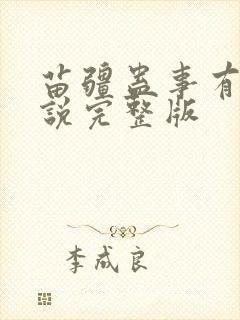 苗疆蛊事有
说完整版
李成良